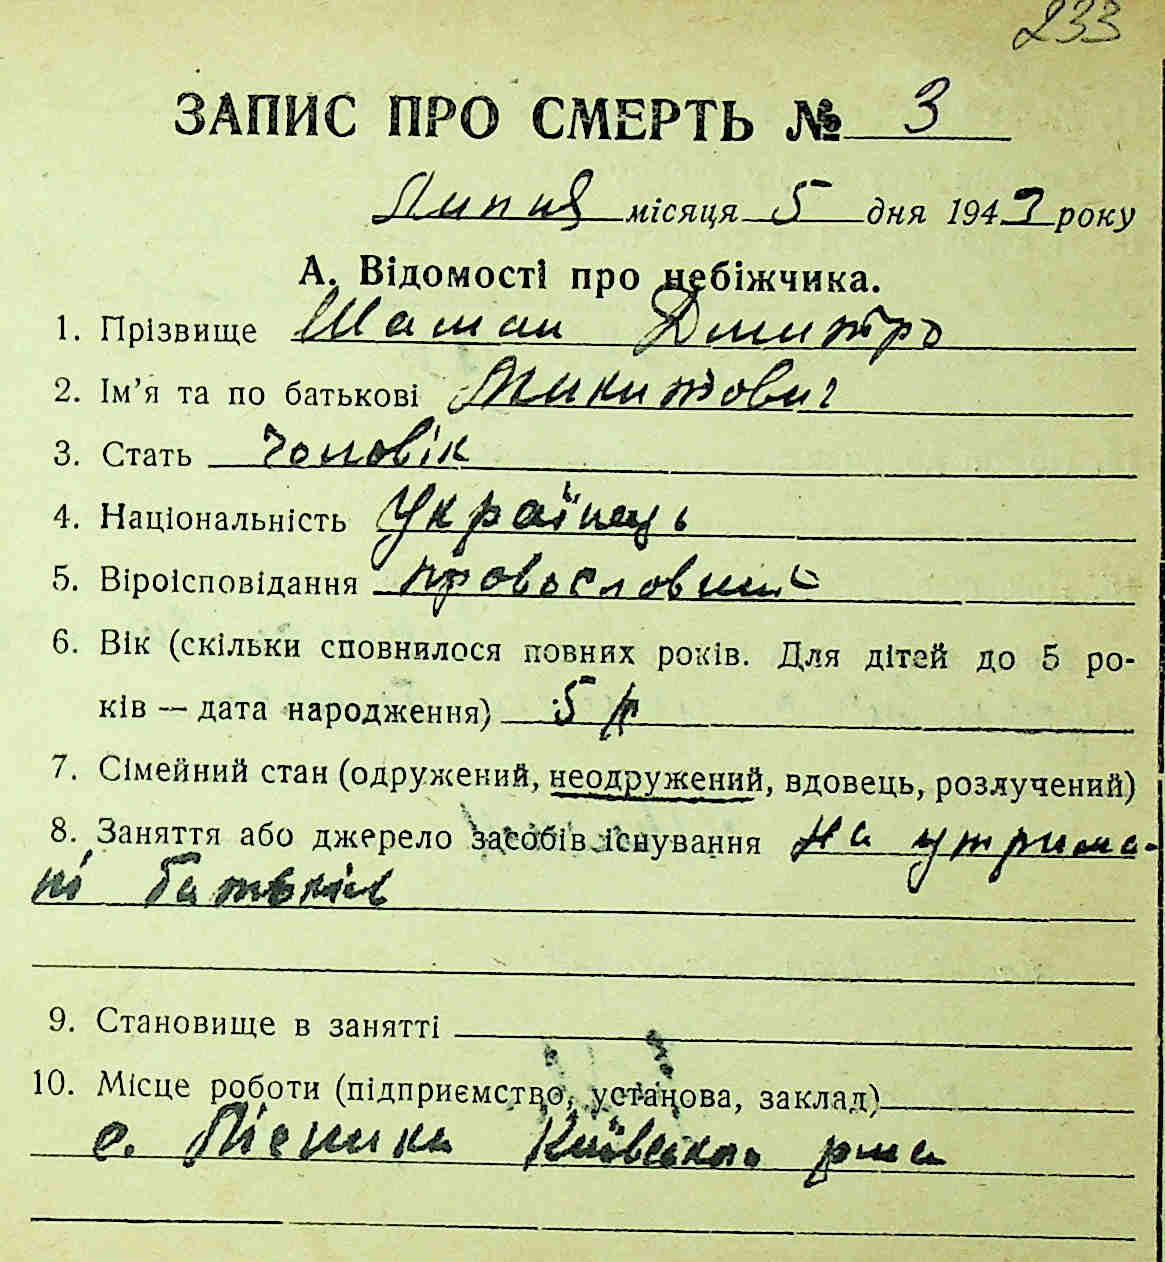 233
ЗАПИС ПРО СМЕРТЬ № 3
Липця місяця 5 дня 1943 року
А. Відомості про небіжчика.
1. Прізвище Шаман Дмитро
2. Ім'я та по батькові Микитович
3. Стать чоловік
4. Національність Українець
5. Віроісповідання провословний
6. Вік (скільки сповнилося повних років. Для дітей до 5 ро-
ків — дата народження) 5 р
7. Сімейний стан (одружений, неодружений, вдовець, розлучений)
8. Заняття або джерело засобів існування На утрима-
ні батьків
9. Становище в занятті
10. Місце роботи (підприємство, установа, заклад)
с. Київського р-на